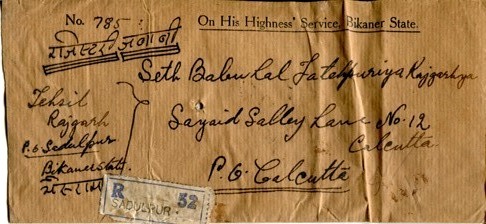 No. 785:
On His Highness' Service, Bikaner State.
रजिस्टरी जबाबी
Seth Babu Lal Fatehpuriya Rajgarhya
Tehsil
Rajgarh
P.O Sadulpur
Bikaner State
Sayaid Salley Lane No. 12
Calcutta
P.O. Calcutta
R SADULPUR 32